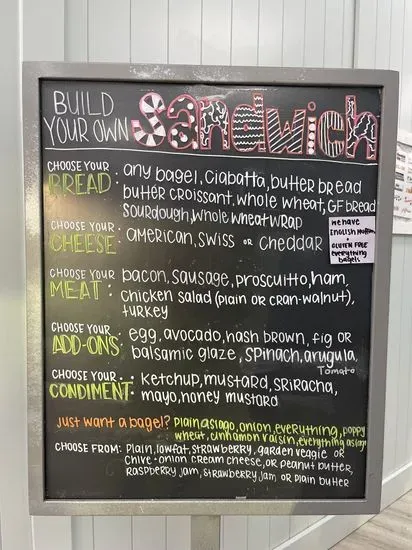 BUILD
YOUR OWN
sandwich
CHOOSE YOUR
BREAD: any bagel, ciabatta, butter bread
butter croissant, whole wheat, GF bread
sourdough, whole wheat wrap
we have
English Muffins
+
GLUTEN FREE
everything
bagels
CHOOSE YOUR
CHEESE: american, swiss or cheddar
CHOOSE YOUR
MEAT: bacon, sausage, prosciutto, ham,
chicken salad (plain or cran-walnut),
turkey
CHOOSE YOUR
ADD-ONS: egg, avocado, hash brown, fig or
balsamic glaze, spinach, arugula,
Tomato
CHOOSE YOUR
CONDIMENT: ketchup, mustard, sriracha,
mayo, honey mustard
Just want a bagel? Plain, asiago, onion, everything, poppy
wheat, cinnamon raisin, everything asiago
CHOOSE FROM: Plain, lowfat, strawberry, garden veggie or
chive + onion cream cheese, or peanut butter,
raspberry jam, strawberry jam or plain butter